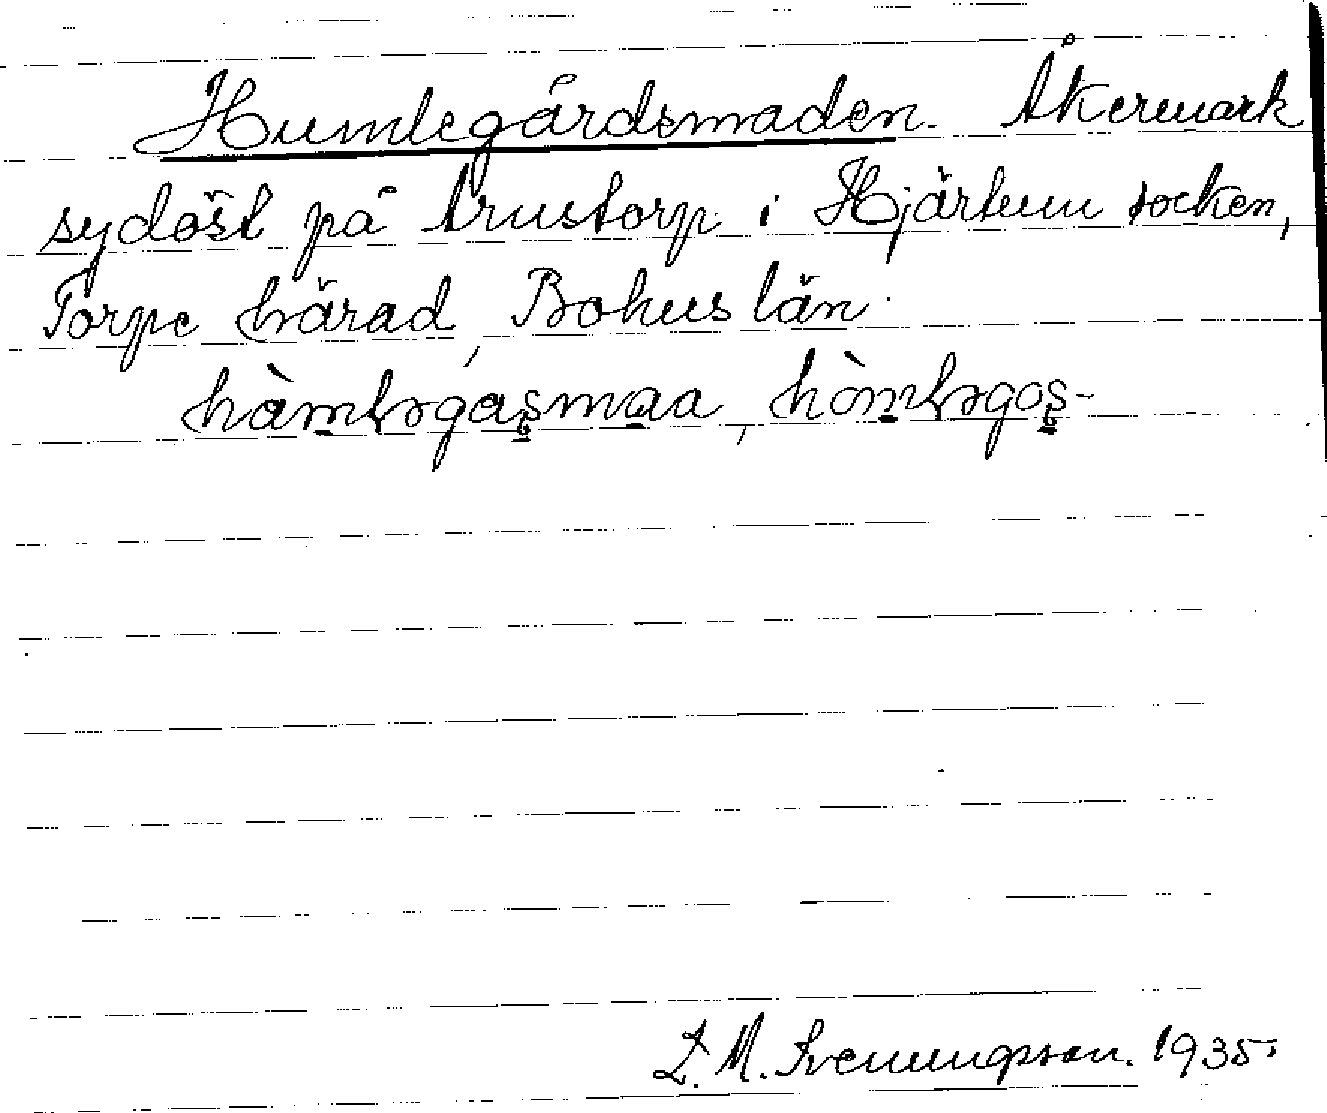 Humlegårdsmaden. Åkermark
sydöst på Arustorp i Hjärtum socken,
Torpe härad, Bohus län.
hòmlɘgaşmaa, hòmlɘgoş-
L. M. Svenungsson. 1935.